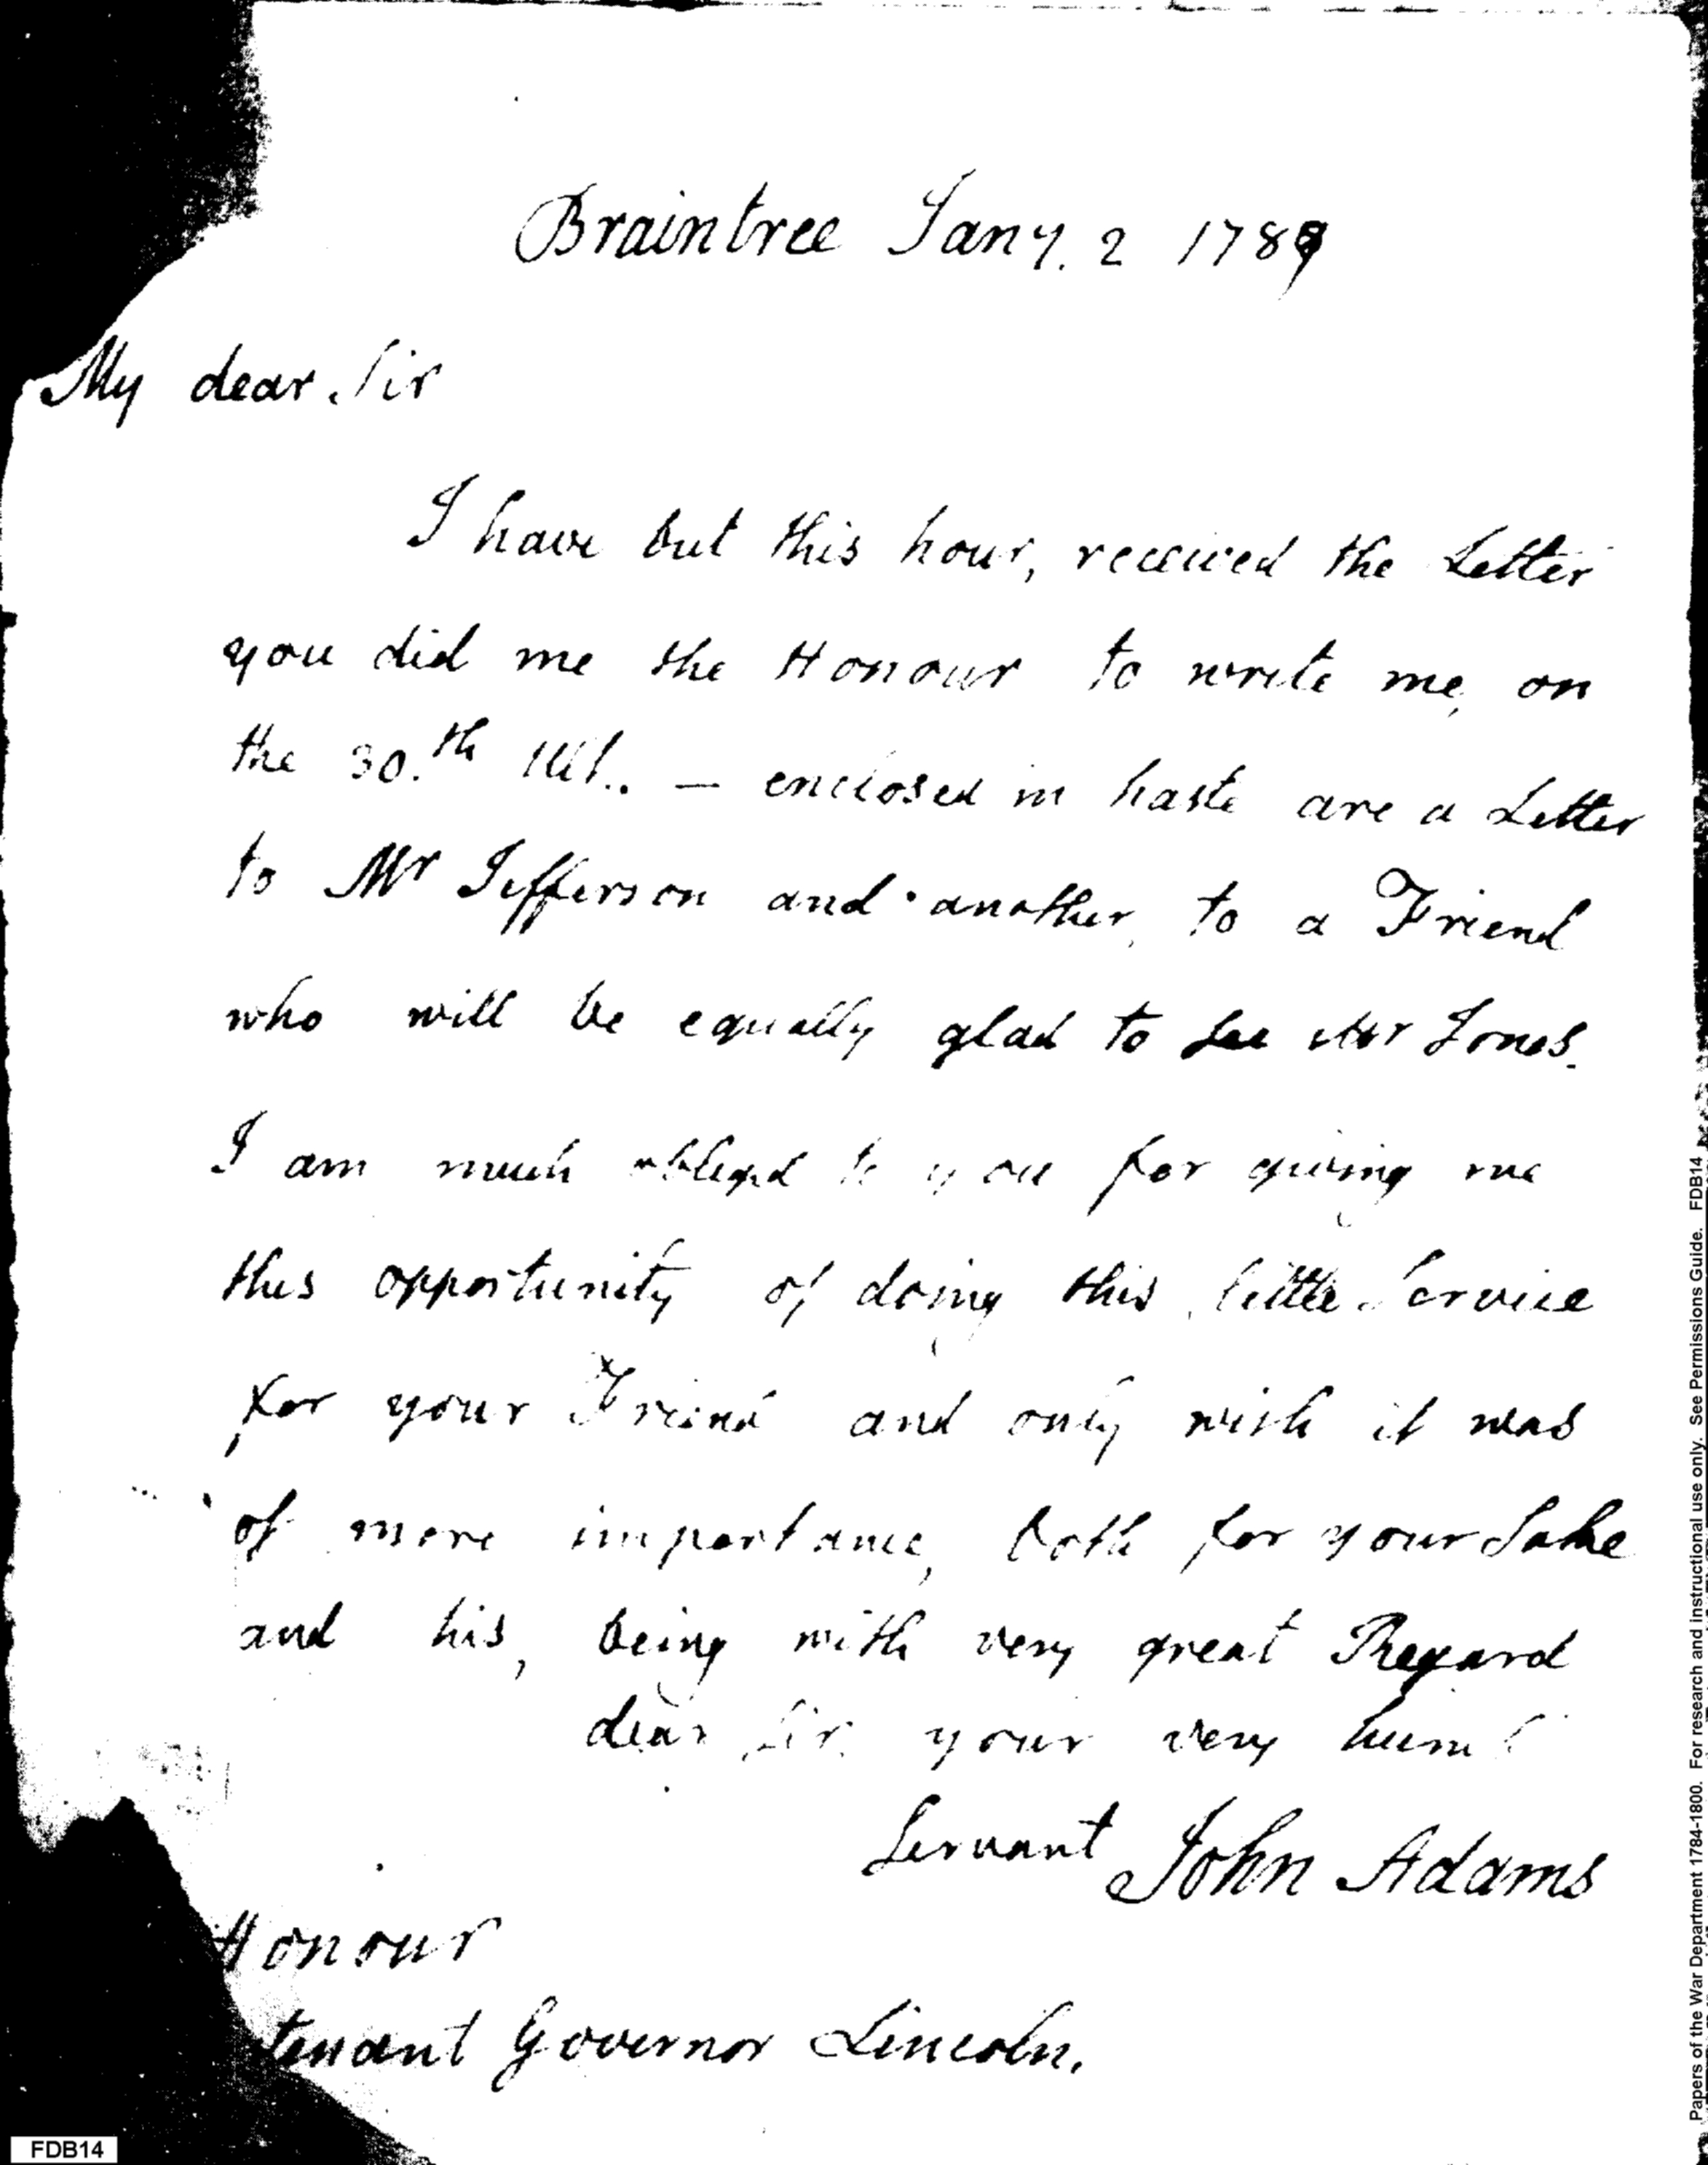 Braintree Jany. 2 1789
My dear Sir
I have but this hour, received the Letter
you did me the Honour to write me, on
the 30.th Ult.. — enclosed in haste are a Letter
to Mr Jefferson and another, to a Friend
who will be equally glad to see Mr Jones.
I am much obliged to you for giving me
this opportunity of doing this little Service
for your Friend and only wish it was
of more importance, both for your Sake
and his, being with very great Regard
dear Sir, your very
Servant John Adams
Honour
tenant Governor Lincoln.
FDB14
Papers of the War Department 1784-1800. For research and instructional use only. See Permissions Guide. FDB14